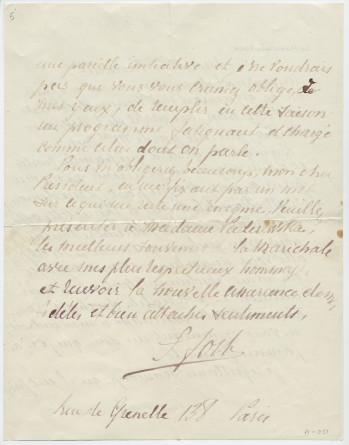 5
une pareille initiative et je ne voudrais
pas que vous vous croiriez obligé de
mes vœux, de remplir en cette saison
un programme fatiguant et chargé
comme celui dont on parle.
Vous m'obligerez beaucoup, mon cher
Président, en me fixant par un mot
sur ce qui est une énigme. Veuillez
présenter à Madame Paderewska
les meilleurs souvenirs de la Maréchale
avec mes plus respectueux hommages
et recevoir la nouvelle assurance de mes
fidèles et bien attachés sentiments,
F. Foch
rue de Grenelle 138 Paris